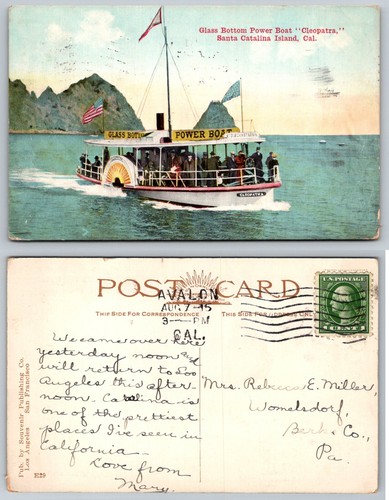 Glass Bottom Power Boat "Cleopatra,"
Santa Catalina Island, Cal.
GLASS BOTTOM POWER BOAT
CLEOPATRA
POST CARD
THIS SIDE FOR CORRESPONDENCE
THIS SIDE FOR ADDRESS ONLY
AVALON
AUG 7 15
3 — PM
CAL.
U.S. POSTAGE
1 CENT 1
We came over here
yesterday noon and
will return to Los
Angeles this after-
noon. Catalina is
one of the prettiest
places I've seen in
California —
Love from
Mary.
Mrs. Rebecca E. Miller,
Womelsdorf,
Berks Co.,
Pa.
Pub. by Souvenir Publishing Co.
Los Angeles San Francisco